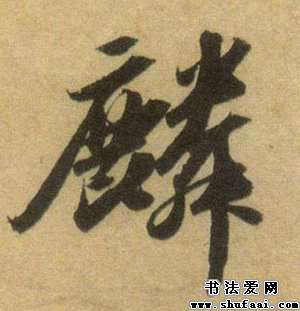 麟
书法爱网
www.shufaai.com